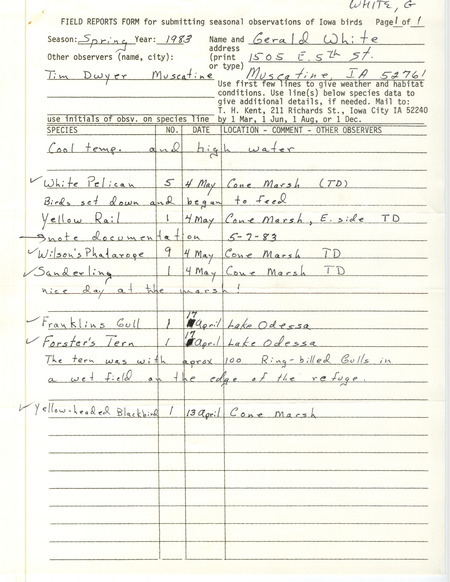 WHITE, G
FIELD REPORTS FORM for submitting seasonal observations of Iowa birds Page 1 of 1
Season: Spring Year: 1983 Name and Gerald White
Other observers (name, city): address
(print 1505 E. 5th St.
or type)
Tim Dwyer Muscatine Muscatine, IA 52761
Use first few lines to give weather and habitat
conditions. Use line(s) below species data to
give additional details, if needed. Mail to:
T. H. Kent, 211 Richards St., Iowa City IA 52240
use initials of obsv. on species line by 1 Mar, 1 Jun, 1 Aug, or 1 Dec.
SPECIES NO. DATE LOCATION - COMMENT - OTHER OBSERVERS
Cool temp. and high water
✓White Pelican 5 4 May Cone Marsh (TD)
Birds set down and began to feed
Yellow Rail 1 4 May Cone Marsh, E. side TD
→note documentation 5-7-83
✓Wilson's Phalarope 9 4 May Cone Marsh TD
✓Sanderling 1 4 May Cone Marsh TD
nice day at the marsh!
✓Franklins Gull 1 17 April Lake Odessa
✓Forster's Tern 1 17 April Lake Odessa
The tern was with aprox 100 Ring-billed Gulls in
a wet field on the edge of the refuge.
✓Yellow-headed Blackbird 1 13 April Cone Marsh